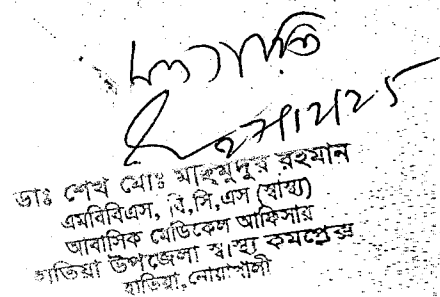 ডাঃ শেখ মোঃ মাহমুদুর রহমান
এমবিবিএস, বি,সি,এস (স্বাস্থ্য)
আবাসিক মেডিকেল অফিসার
হাতিয়া উপজেলা স্বাস্থ্য কমপ্লেক্স
হাতিয়া, নোয়াখালী